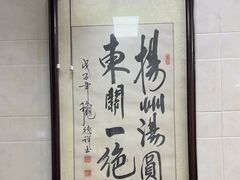 揚州湯圓
東關一絕
戊子年